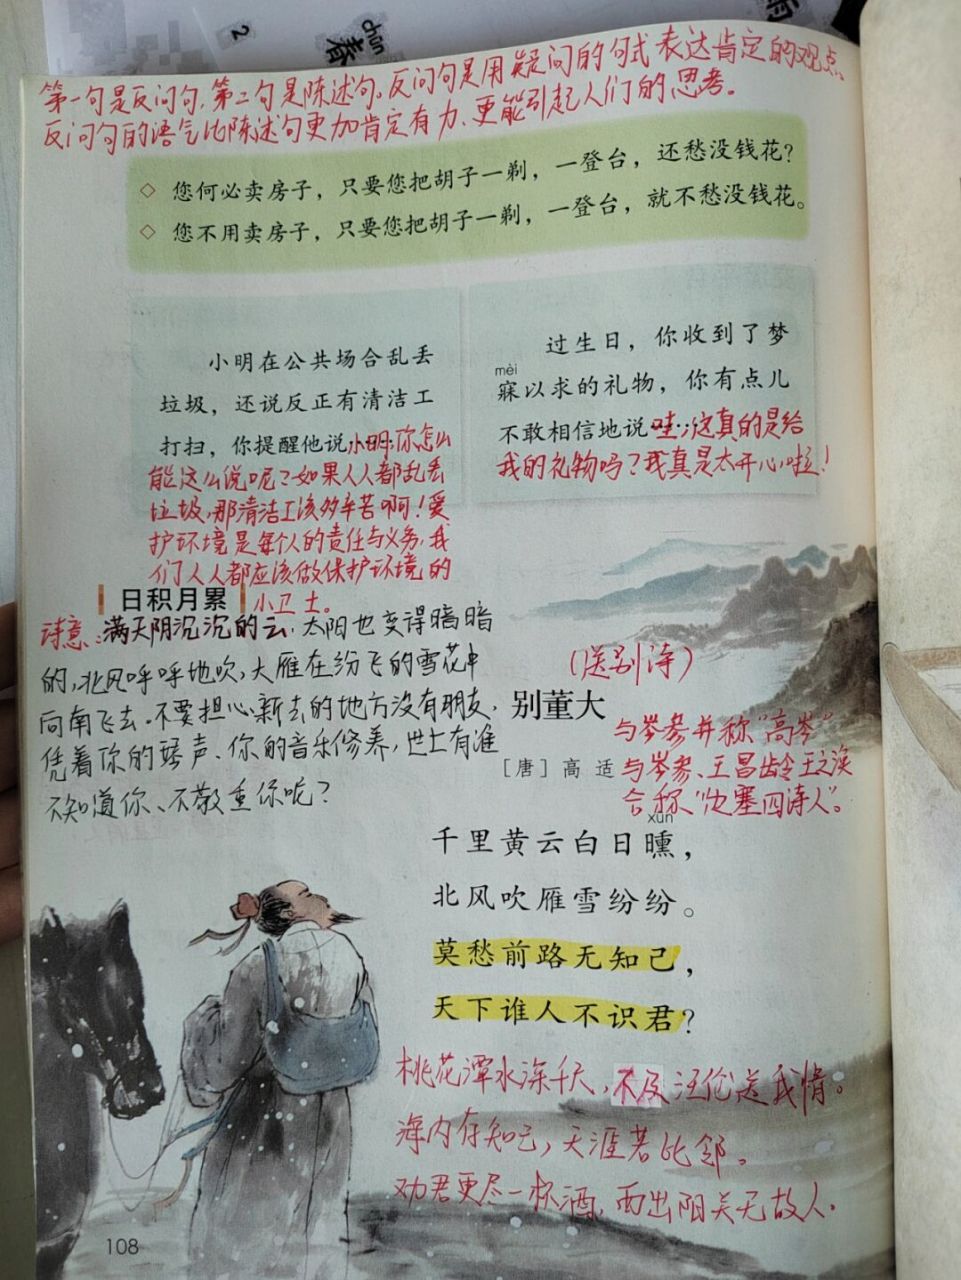 chūn
春
2
第一句是反问句,第二句是陈述句。反问句是用疑问的句式表达肯定的观点。
反问句的语气比陈述句更加肯定有力、更能引起人们的思考。
◇ 您何必卖房子，只要您把胡子一剃，一登台，还愁没钱花？
◇ 您不用卖房子，只要您把胡子一剃，一登台，就不愁没钱花。
小明在公共场合乱丢
垃圾，还说反正有清洁工
打扫，你提醒他说……小明,你怎么
能这么说呢？如果人人都乱丢
垃圾,那清洁工该多辛苦啊！爱
护环境是每个人的责任与义务,我
们人人都应该做保护环境的
小卫士。
过生日，你收到了梦
mèi
寐以求的礼物，你有点儿
不敢相信地说……哇,这真的是给
我的礼物吗？我真是太开心啦！
日积月累
诗意:满天阴沉沉的云,太阳也变得暗暗
的,北风呼呼地吹,大雁在纷飞的雪花中
向南飞去。不要担心新去的地方没有朋友,
凭着你的琴声、你的音乐修养,世上有谁
不知道你、不敬重你呢？
(送别诗)
别董大
［唐］高 适
与岑参并称“高岑”
与岑参、王昌龄、王之涣
合称“边塞四诗人”。
xūn
千里黄云白日曛，
北风吹雁雪纷纷。
莫愁前路无知己，
天下谁人不识君？
桃花潭水深千尺,不及汪伦送我情。
海内存知己,天涯若比邻。
劝君更尽一杯酒,西出阳关无故人.
108